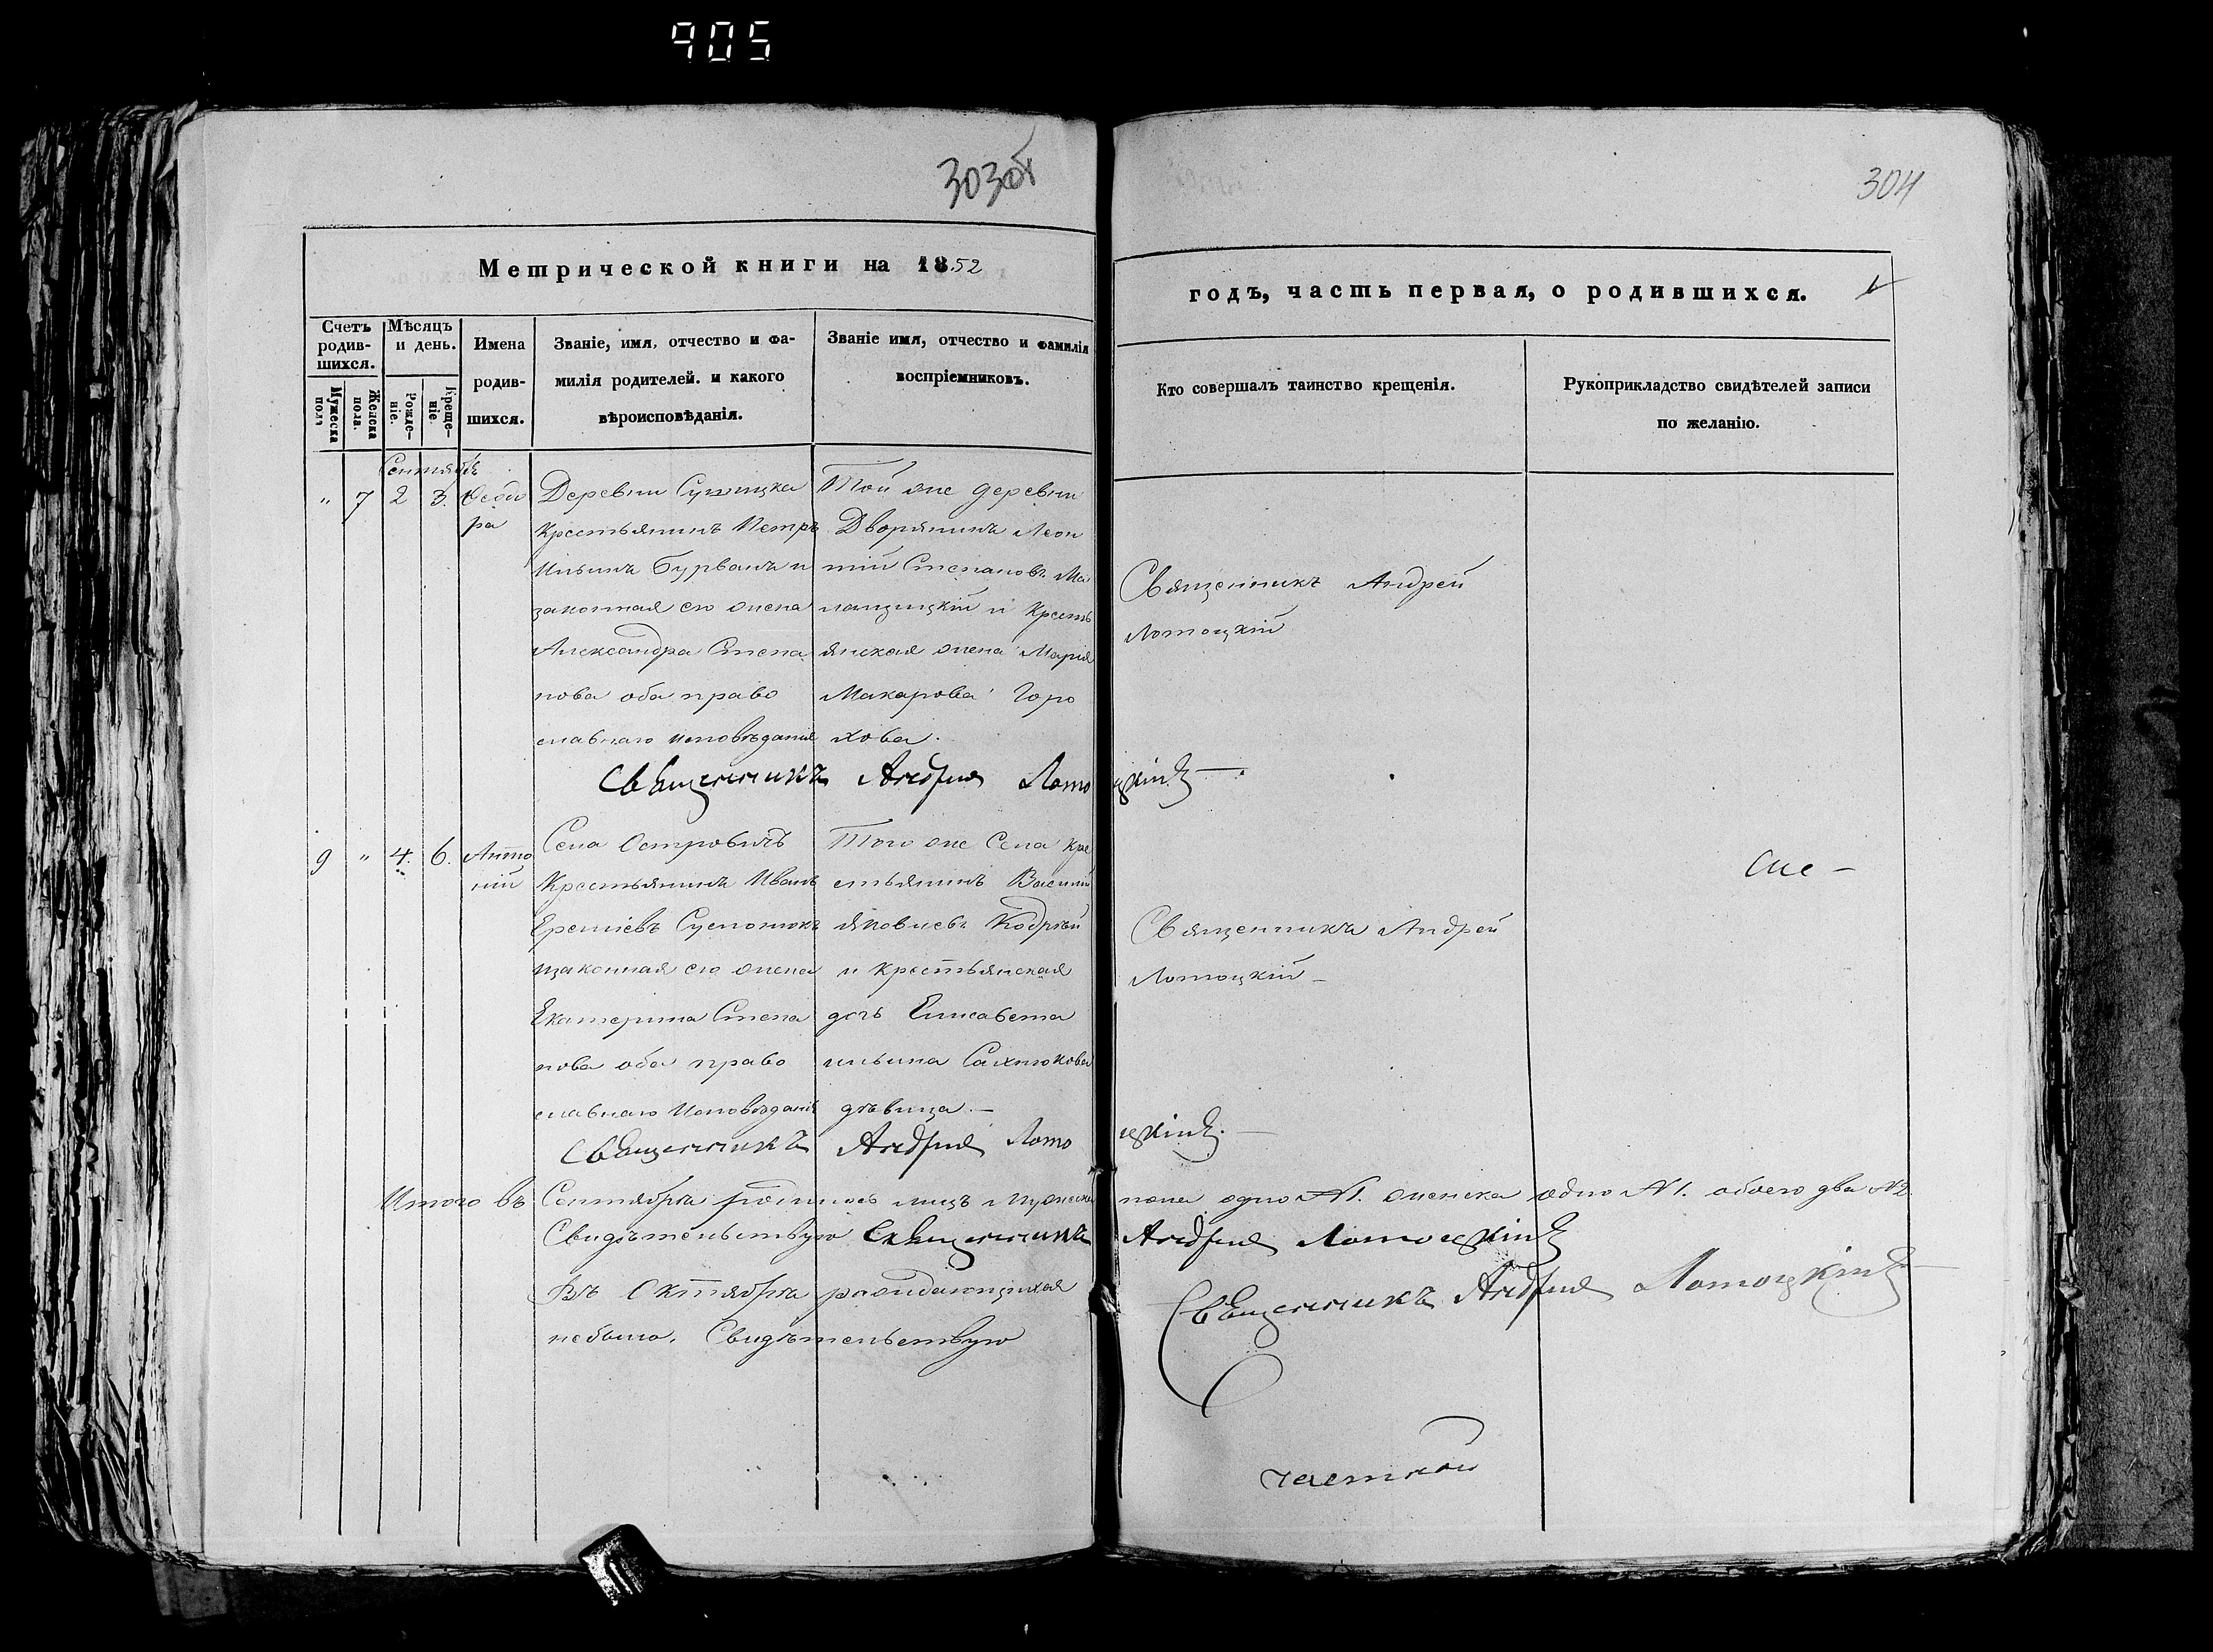 905
303об
304
Метрической книги на 1852
годъ, часть первая, о родившихся.
Счетъ родив-шихся.
Мѣсяцъ и день.
Мужеска пола
Женска пола.
Рожде-ніе.
Креще-ніе.
Имена
родив-
шихся.
Званіе, имя, отчество и фа-
милія родителей. и какого
вѣроисповѣданія.
Званіе имя, отчество и фамилія
воспріемниковъ.
Кто совершалъ таинство крещенія.
Рукоприкладство свидѣтелей записи
по желанію.
Сентябрь
" 7 2 3. Феодо
ра
Деревни
Крестьянинъ Петръ
Ильинъ Бурванъ и
законная его жена
Александра Степа
нова оба право
славнаго исповѣданія
Той же деревни
Дворянинъ Леон
тій Степановъ Ма
и Кресть
янская жена Марія
Макарова Горо
хова.
Священникъ Андрей
Лотоцкій
Священникъ Андрей Лотоцкій
9 " 4. 6. Анто
ній
Села Островичъ
Крестьянинъ Иванъ
законная его жена
Екатерина Степа
нова оба право
славнаго исповѣданія
Того же Села Кре
стьянинъ Василій
Яковлевъ
и крестьянская
дочь Елисавета
Ильина Сахнюкова
дѣвица.
Священникъ Андрей
Лотоцкій
Священникъ Андрей Лотоцкій.
Итого въ Сентябрѣ родилось лицъ мужеска пола одно №1. женска одно №1. обоего два №2.
Свидѣтельствую Священникъ Андрей Лотоцкій
Въ Октябрѣ раждающихся
небыло. Свидѣтельствую
Священникъ Андрей Лотоцкій